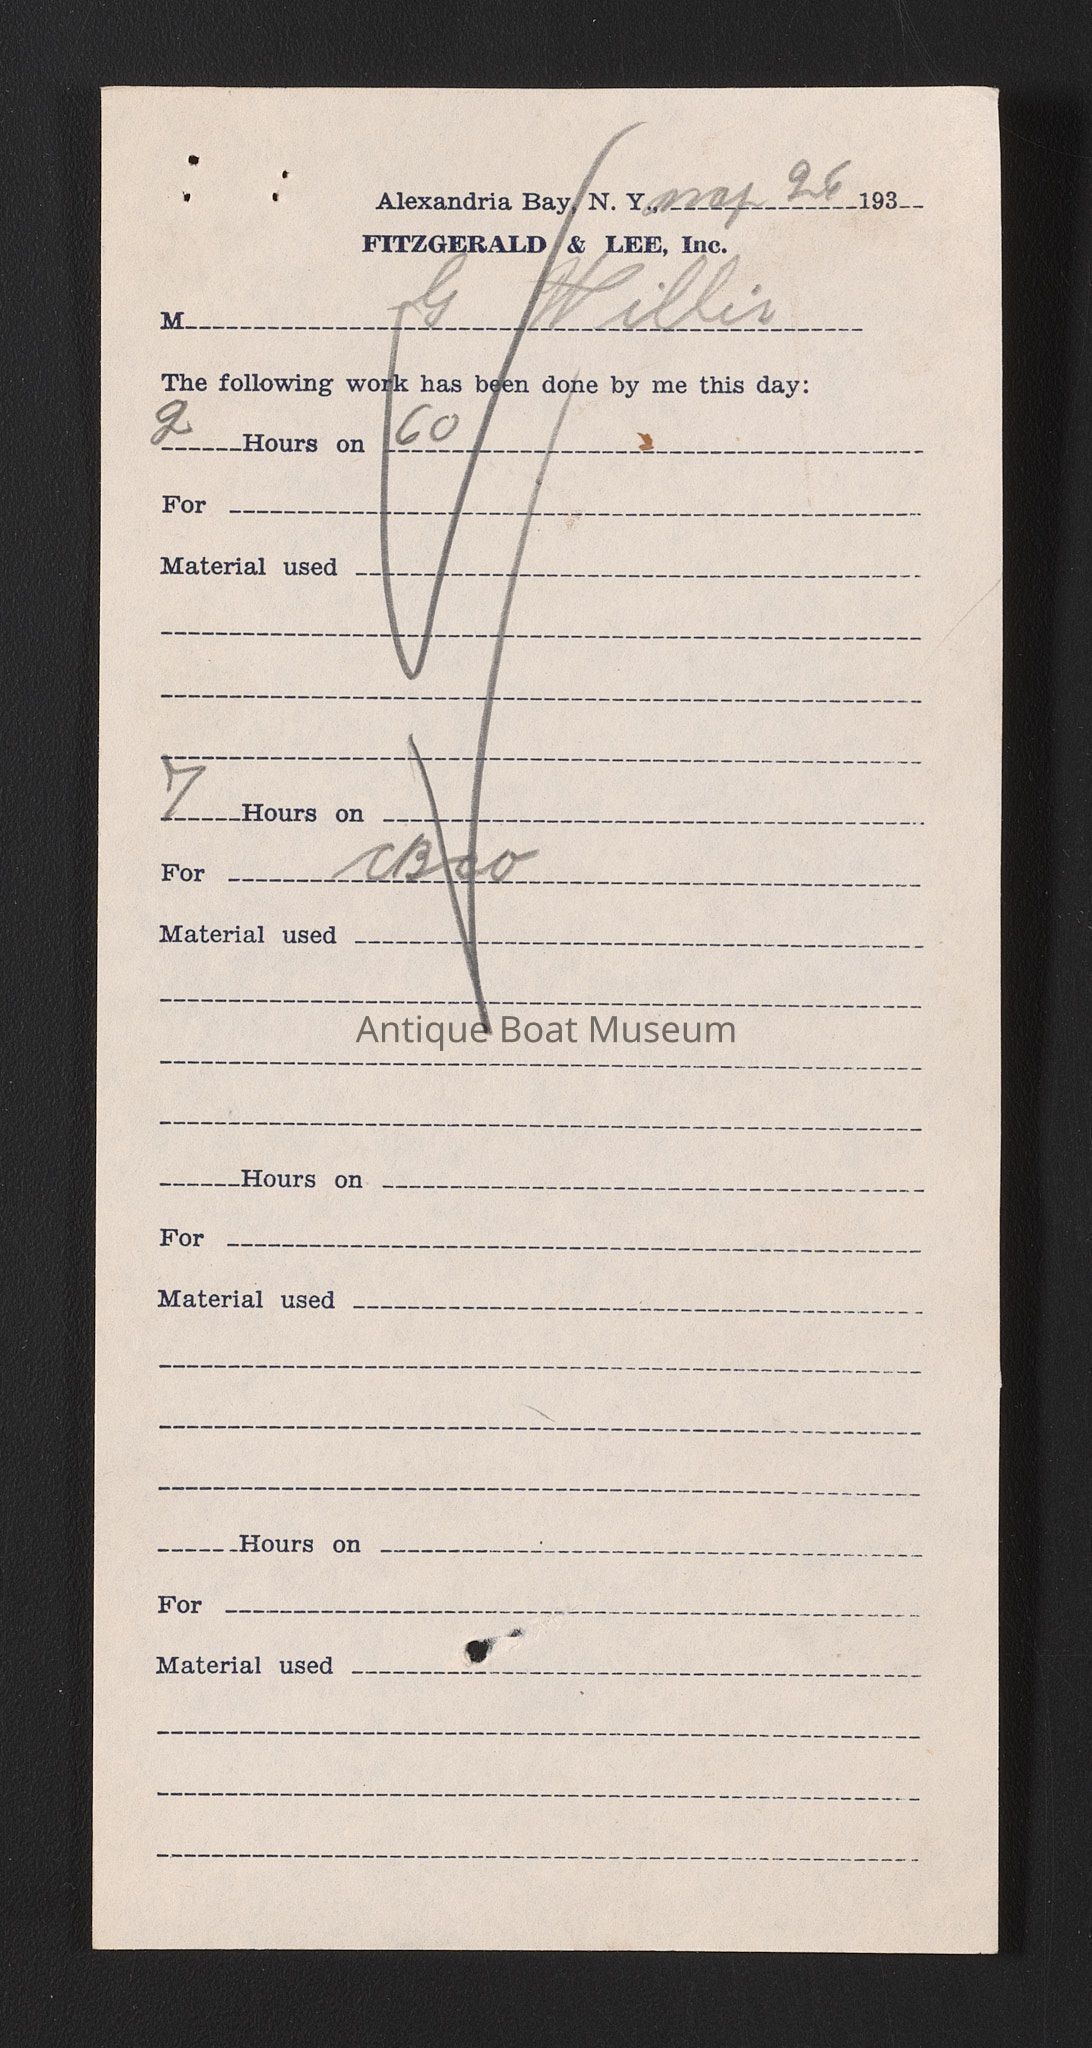 Alexandria Bay, N. Y., 26 193
FITZGERALD & LEE, Inc.
M G Willis
The following work has been done by me this day:
2 Hours on 60
For
Material used
7 Hours on
For
Material used
Antique Boat Museum
Hours on
For
Material used
Hours on
For
Material used